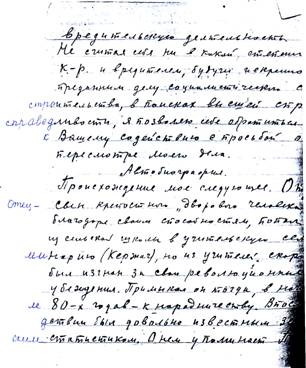 вредительскую деятельность.
Не считая себя ни в какой степени
к-р. и вредителем, будучи искренно
преданным делу социалистического с
строительства, в поисках высшей спр
справедливости, я позволяю себе обратиться
к Вашему содействию с просьбой о
пересмотре моего дела.
Автобиография.
Происхождение мое следующее. От
отец- сын крепостного "дворового человека
благодаря своим способностям, попал
из сельской школы в учительскую се
минарию (Кержач), но из учителей скоро
был изгнан за свои революционные
убеждения. Примыкал он тогда, в на
ле 80-х годов - к народничеству. Впос
дствии был довольно известным зе
ским статистиком. О нем упоминает